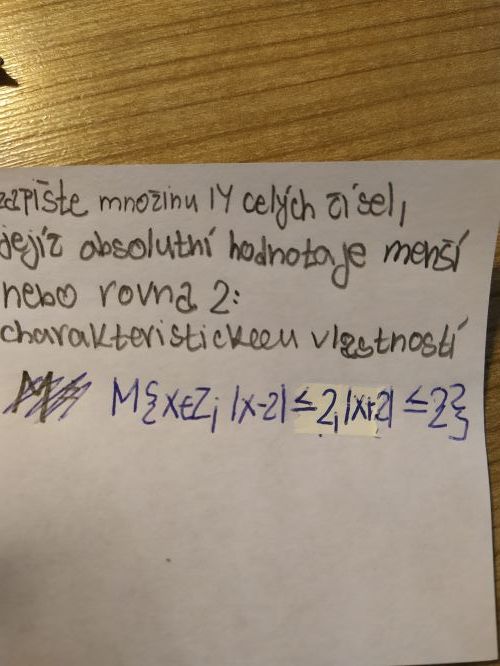 zapište množinu M celých čísel,
jejíž absolutní hodnota je menší
nebo rovna 2:
charakteristickou vlastností
M{x∈Z; |x-2| ≤ 2, |x+2| ≤ 2}